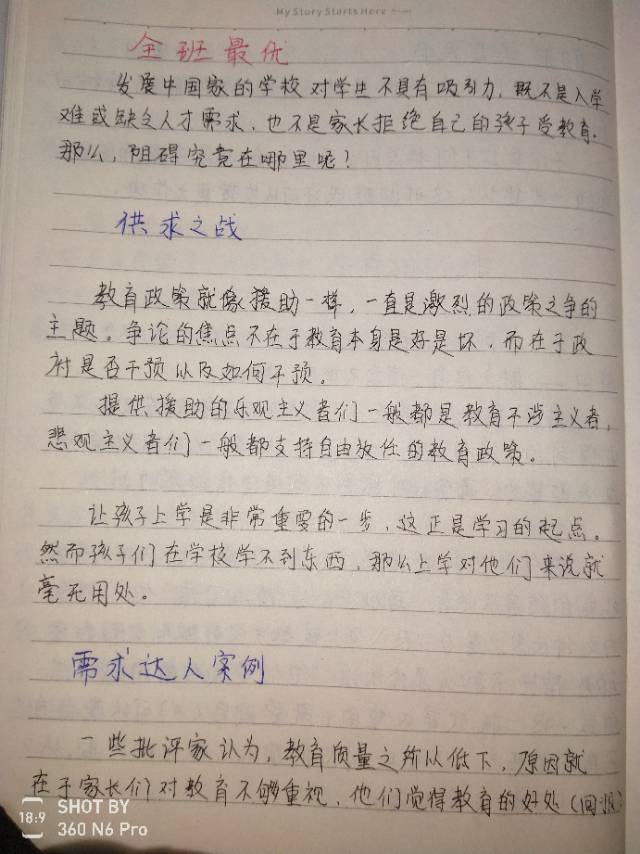 My Story Starts Here
全班最优
发展中国家的学校对学生不具有吸引力，既不是入学
难或缺乏人才需求，也不是家长拒绝自己的孩子受教育。
那么，阻碍究竟在哪里呢？
供求之战
教育政策就像援助一样，一直是激烈的政策之争的
主题。争论的焦点不在于教育本身是好是坏，而在于政
府是否干预以及如何干预。
提供援助的乐观主义者们一般都是教育干涉主义者，
悲观主义者们一般都支持自由放任的教育政策。
让孩子上学是非常重要的一步，这正是学习的起点。
然而孩子们在学校学不到东西，那么上学对他们来说就
毫无用处。
需求达人实例
一些批评家认为，教育质量之所以低下，原因就
在于家长们对教育不够重视，他们觉得教育的好处（回报）
18:9
SHOT BY
360 N6 Pro